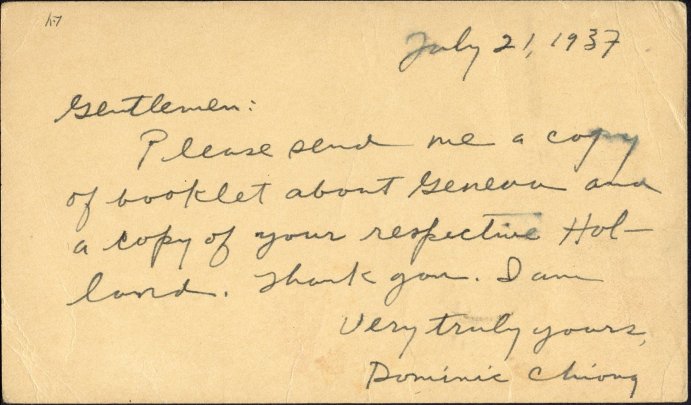 July 21, 1937
Gentlemen:
Please send me a copy
of booklet about Geneva and
a copy of your respective Hol-
land. Thank you. I am
Very truly yours,
Dominic Chiong